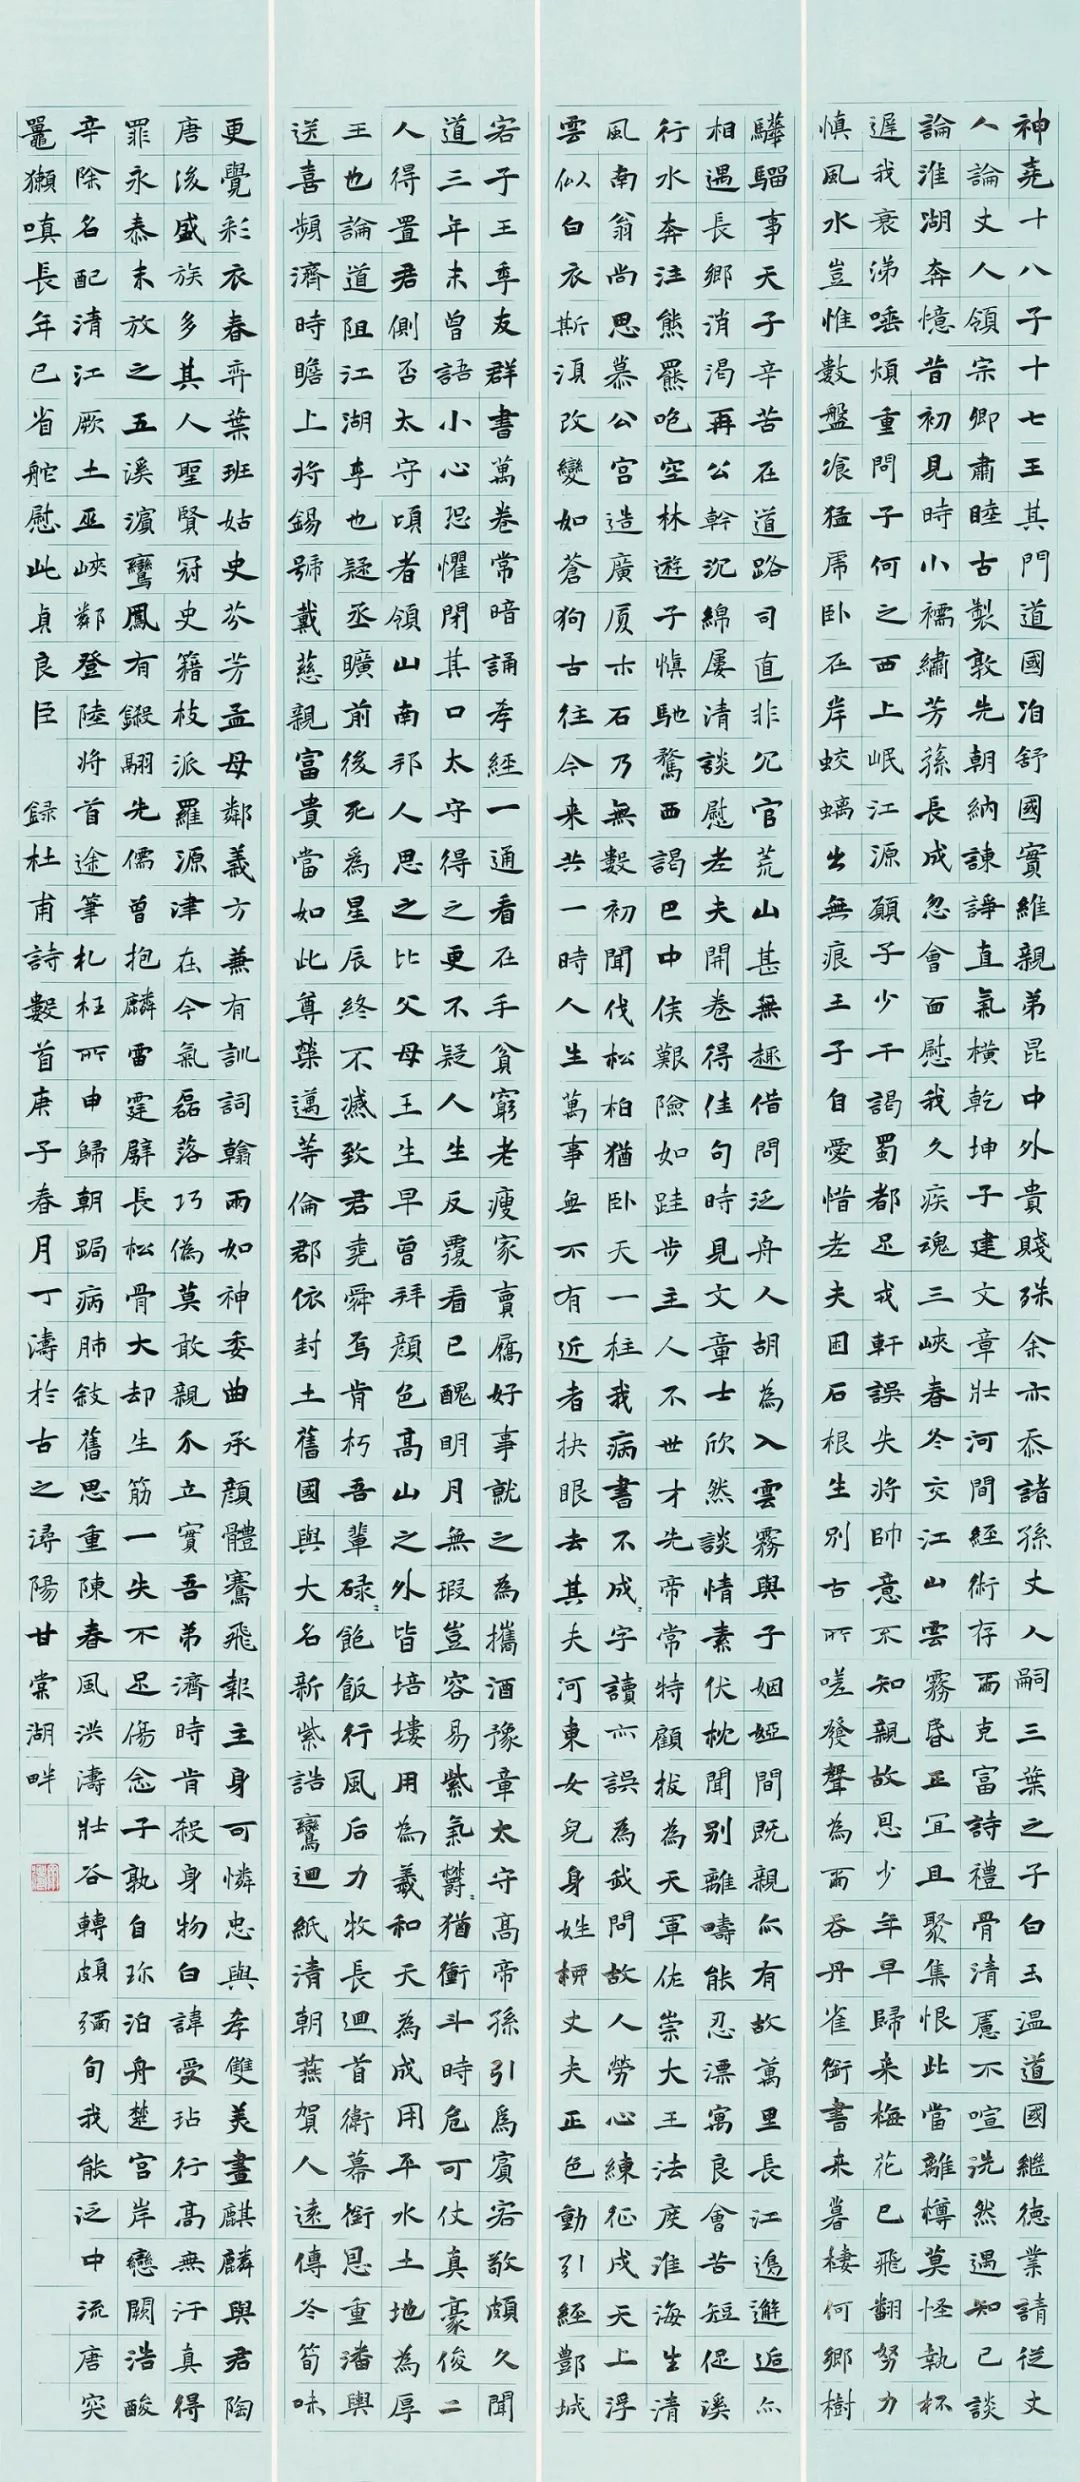 神堯十八子十七王其門道國洎舒國實維親弟昆中外貴賤殊余亦忝諸孫丈人嗣三葉之子白玉溫道國繼德業請從丈
人論丈人領宗卿肅睦古製敦先朝納諫諍直氣橫乾坤子建文章壯河間經術存爾克富詩禮骨清慮不喧洗然遇知己談
論淮湖奔憶昔初見時小襦繡芳蓀長成忽會面慰我久疾魂三峽春冬交江山雲霧昏正宜且聚集恨此當離樽莫怪執杯
遲我衰涕唾煩重問子何之西上岷江源願子少干謁蜀都足戎軒誤失將帥意不知親故恩少年早歸来梅花已飛翻努力
慎風水豈惟數盤飧猛虎卧在岸蛟螭出無痕王子自愛惜老夫困石根生別古所嗟發聲為爾吞丹雀銜書来暮棲何鄉樹
驊騮事天子辛苦在道路司直非冗官荒山甚無趣借問泛舟人胡為入雲霧與子姻婭間既親亦有故萬里長江邊邂逅亦
相遇長卿消渴再公幹沉綿屢清談慰老夫開卷得佳句時見文章士欣然談情素伏枕聞別離疇能忍漂寓良會苦短促溪
行水奔注熊羆咆空林遊子慎馳騖西謁巴中侯艱險如跬步主人不世才先帝常特顧拔為天軍佐崇大王法度淮海生清
風南翁尚思慕公宮造廣廈木石乃無數初聞伐松柏猶卧天一柱我病書不成〻字讀亦誤為我問故人勞心練征戍天上浮
雲似白衣斯須改變如蒼狗古往今来共一時人生萬事無不有近者抉眼去其夫河東女兒身姓柳丈夫正色動引經酆城
客子王季友群書萬卷常暗誦孝經一通看在手貧窮老瘦家賣屩好事就之為攜酒豫章太守高帝孫引為賓客敬頗久聞
道三年未曾語小心恐懼閉其口太守得之更不疑人生反覆看已醜明月無瑕豈容易紫氣鬱〻猶衝斗時危可仗真豪俊二
人得置君側否太守頃者領山南邦人思之比父母王生早曾拜顏色高山之外皆培塿用為羲和天為成用平水土地為厚
王也論道阻江湖李也疑丞曠前後死為星辰終不滅致君堯舜焉肯朽吾輩碌〻飽飯行風后力牧長迴首衛幕銜恩重潘輿
送喜頻濟時瞻上將錫號戴慈親富貴當如此尊榮邁等倫郡依封土舊國與大名新紫誥鸞迴紙清朝燕賀人遠傳冬筍味
更覺彩衣春弈葉班姑史芬芳孟母鄰義方兼有訓詞翰兩如神委曲承顏體騫飛報主身可憐忠與孝雙美畫麒麟與君陶
唐後盛族多其人聖賢冠史籍枝派羅源津在今氣磊落巧偽莫敢親介立實吾弟濟時肯殺身物白諱受玷行高無汙真得
罪永泰末放之五溪濱鸞鳳有鎩翮先儒曾抱麟雷霆劈長松骨大却生筋一失不足傷念子孰自珍泊舟楚宮岸戀闕浩酸
辛除名配清江厥土巫峽鄰登陸將首途筆札枉所申歸朝跼病肺敍舊思重陳春風洪濤壯谷轉頗彌旬我能泛中流唐突
鼉獺嗔長年已省舵慰此貞良臣 録杜甫詩數首庚子春月丁濤於古之潯陽甘棠湖畔